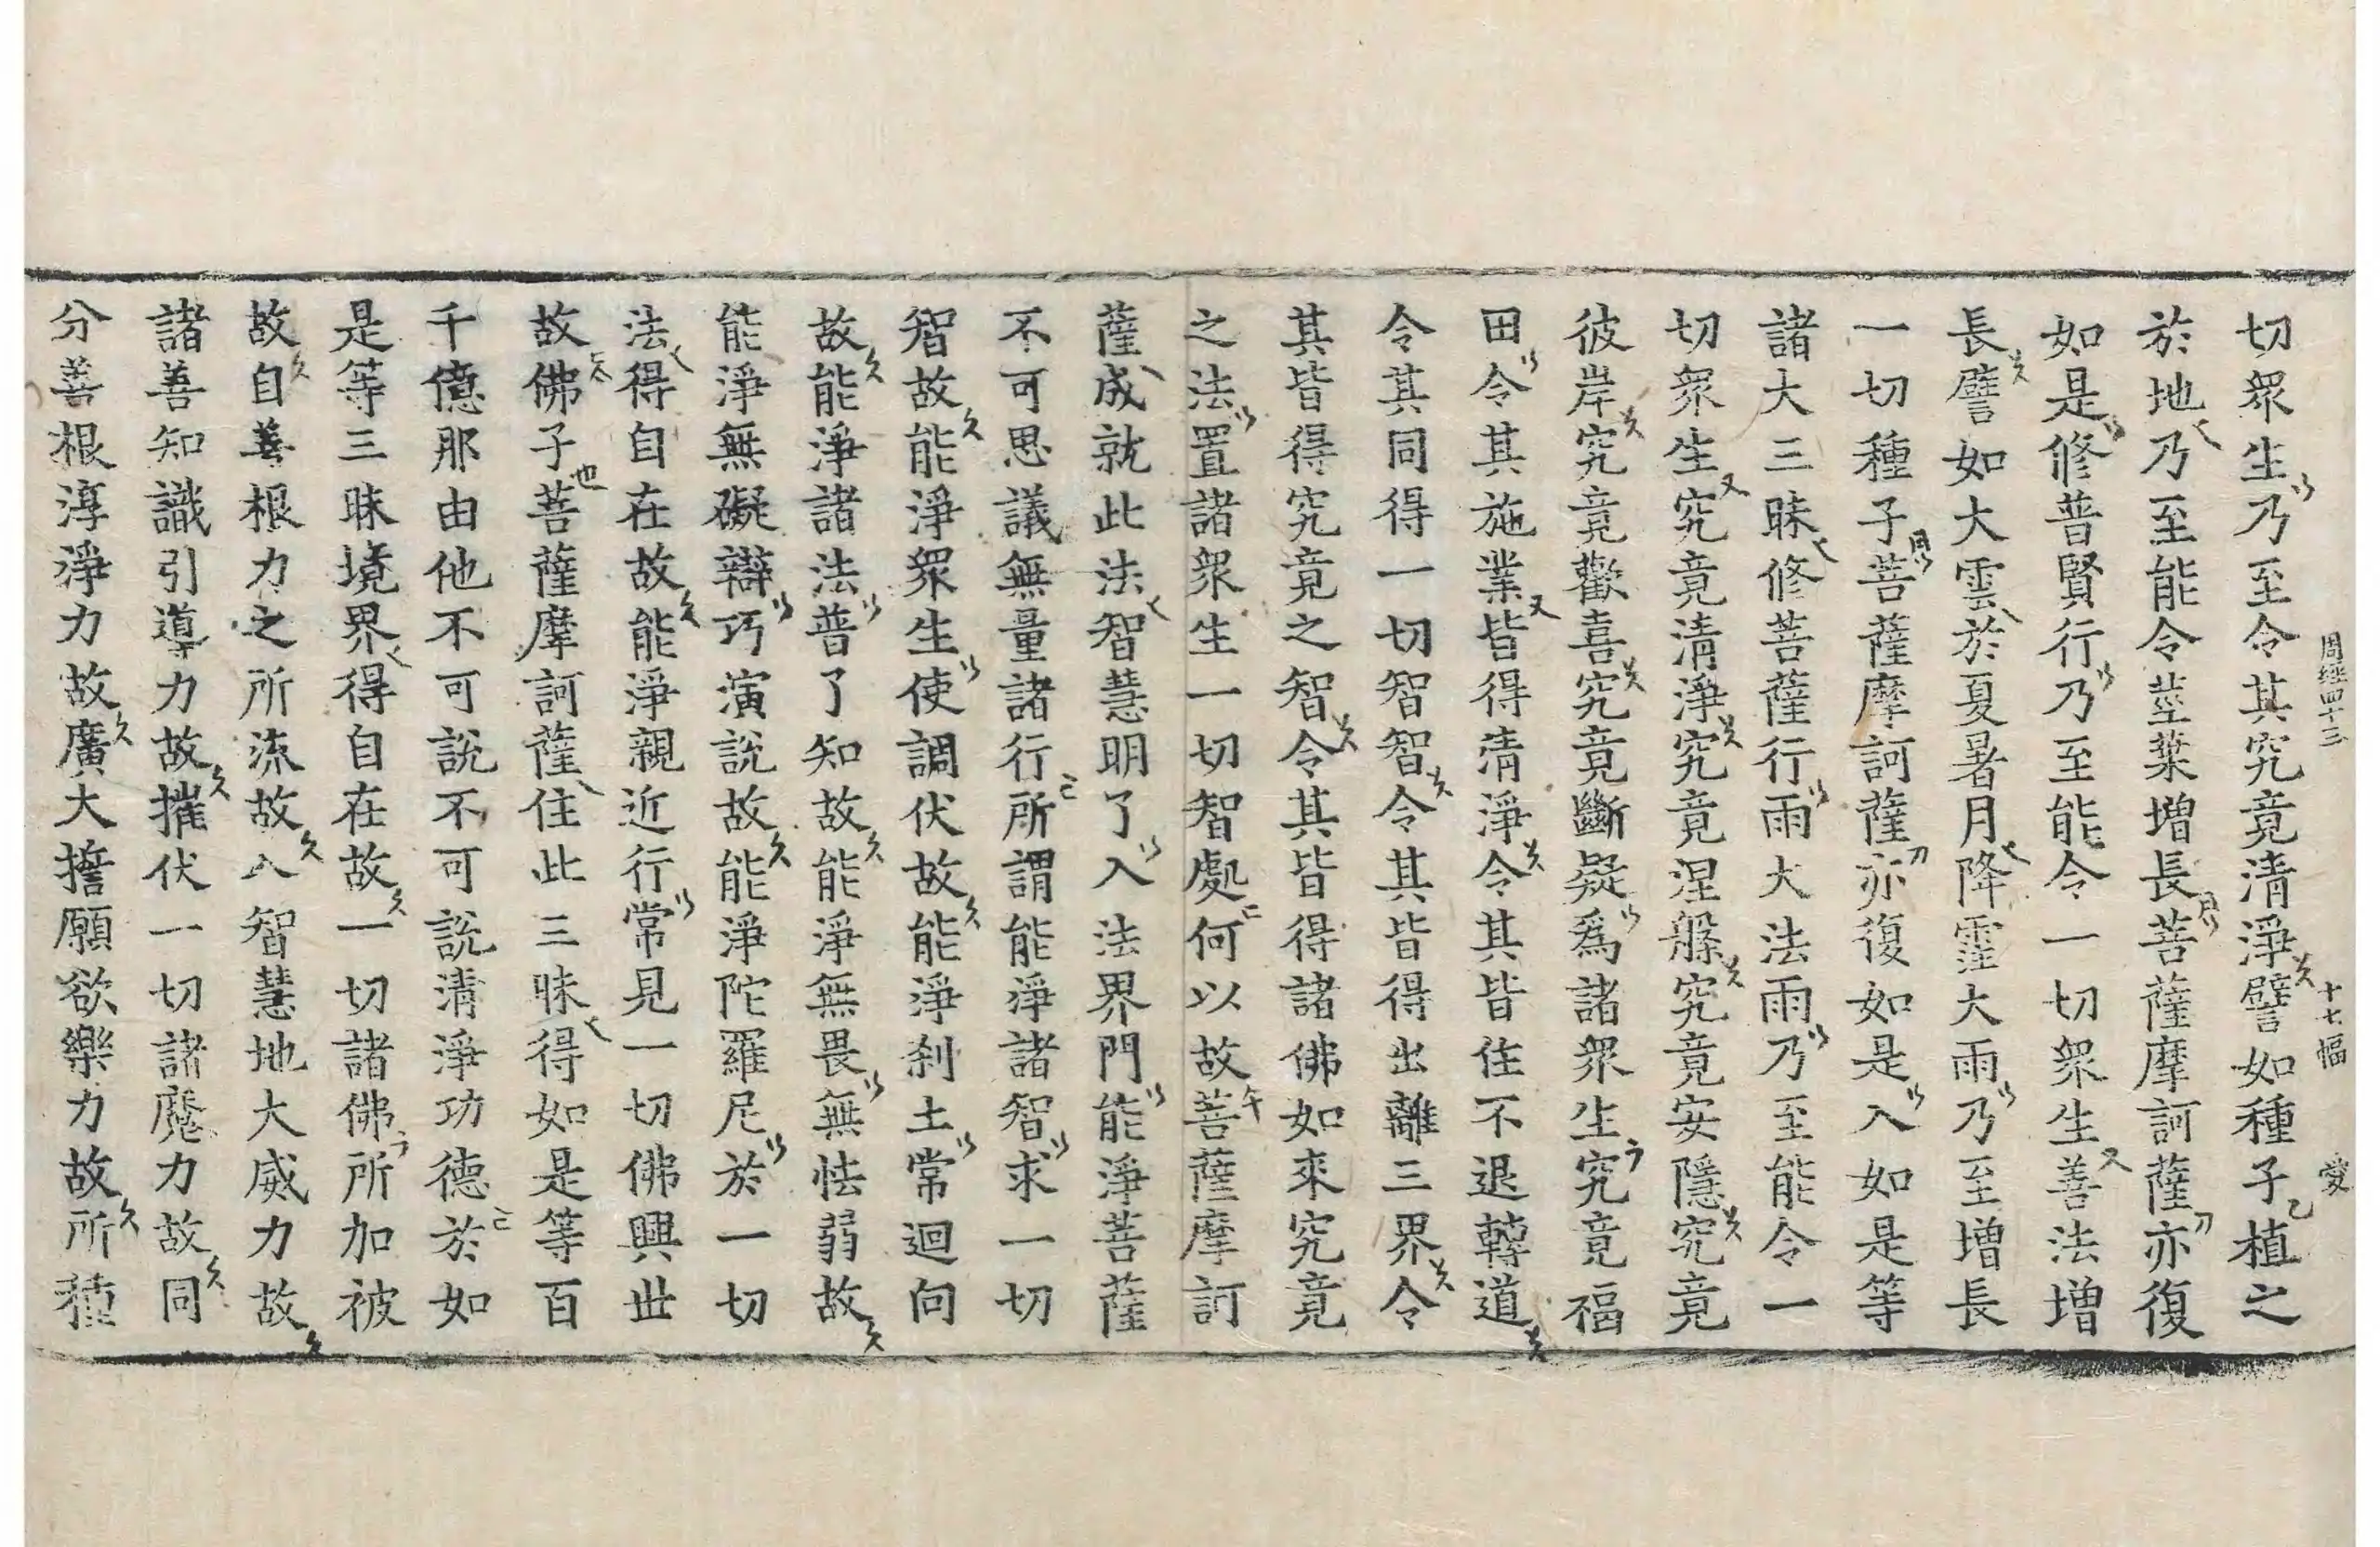 周經四十三 十七幅 愛
切衆生乃至令其究竟清淨譬如種子植之
於地乃至能令莖葉增長菩薩摩訶薩亦復
如是修普賢行乃至能令一切衆生善法增
長譬如大雲於夏暑月降霔大雨乃至增長
一切種子菩薩摩訶薩亦復如是入如是等
諸大三昧修菩薩行雨大法雨乃至能令一
切衆生究竟清淨究竟涅槃究竟安隱究竟
彼岸究竟歡喜究竟斷疑爲諸衆生究竟福
田令其施業皆得清淨令其皆住不退轉道
令其同得一切智智令其皆得出離三界令
其皆得究竟之智令其皆得諸佛如來究竟
之法置諸衆生一切智處何以故菩薩摩訶
薩成就此法智慧明了入法界門能淨菩薩
不可思議無量諸行所謂能淨諸智求一切
智故能淨衆生使調伏故能淨刹土常迴向
故能淨諸法普了知故能淨無畏無怯弱故
能淨無礙辯巧演說故能淨陀羅尼於一切
法得自在故能淨親近行常見一切佛興世
故佛子菩薩摩訶薩住此三昧得如是等百
千億那由他不可說不可說清淨功德於如
是等三昧境界得自在故一切諸佛所加被
故自善根力之所流故入智慧地大威力故
諸善知識引導力故摧伏一切諸魔力故同
分善根淳淨力故廣大擔願欲樂力故所種